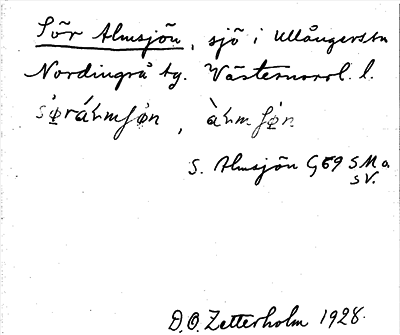 Sör Almsjön, sjö i Ullångers sn
Nordingrå tg. Västernorrl. l.
S. Almsjön G59 SMa
SV.
D.O. Zetterholm 1928.